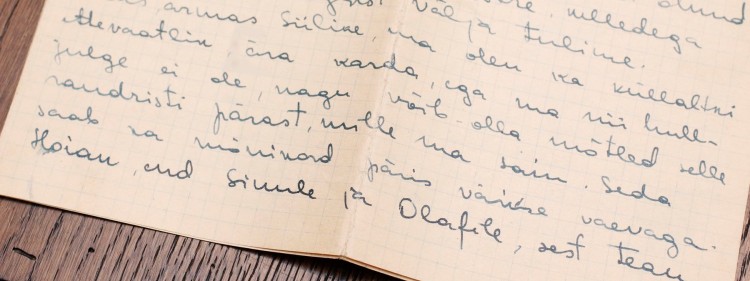 olnud
välja tulime.
armas Siiline, ma olen ka küllaltki
ära karda, ega ma nii hull-
julge ei ole, nagu võib-olla mõtled selle
randristi pärast, mille ma sain. Seda
saab ka mõnikord päris väikse vaevaga.
Hoian, end Siimule ja Olafile, sest tean